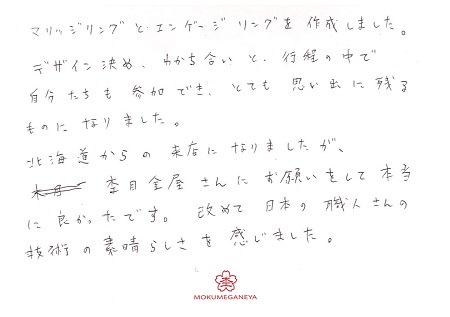 マリッジリングとエンゲージリングを作成しました。
デザイン決め、わかち合いと、行程の中で
自分たちも参加でき、とても思い出に残る
ものになりました。
北海道からの来店になりましたが、
杢目金屋さんにお願いをして本当
に良かったです。改めて日本の職人さんの
技術の素晴らしさを感じました。
杢
MOKUMEGANEYA